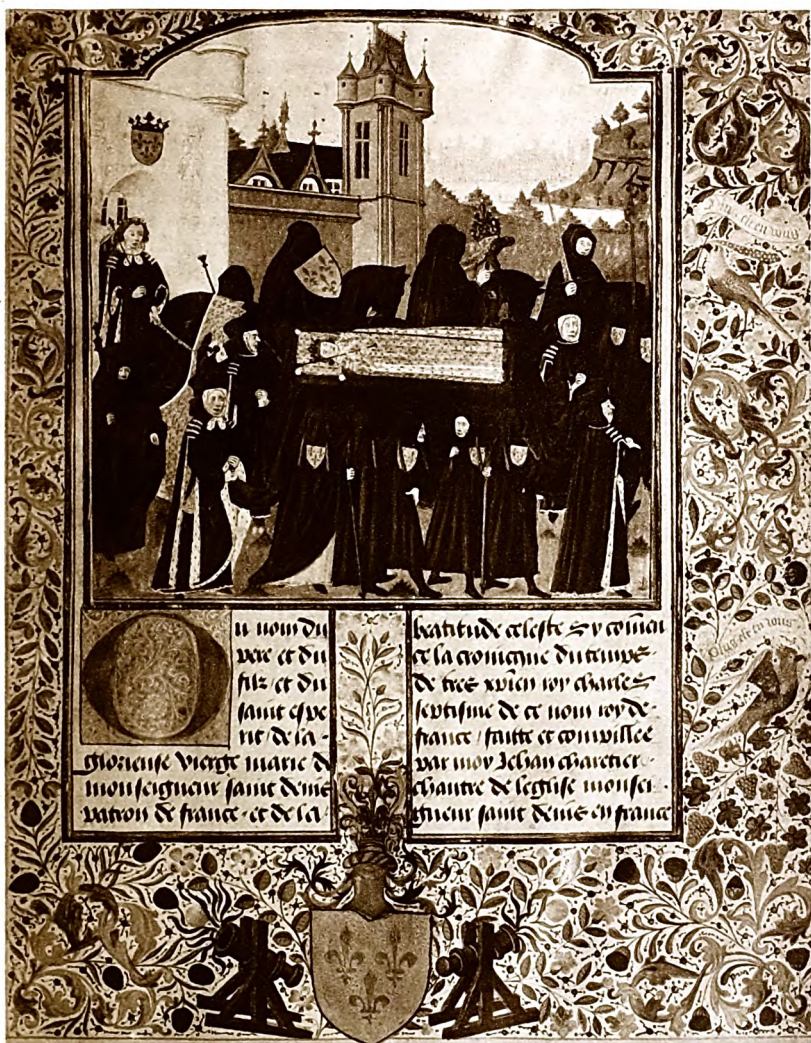 u nom du
pere et du
filz et du
saint espe
rit de la
glorieuse vierge marie de
monseigneur saint denis
patron de france et de la
beatitude celeste Sy comen
ce la cronicque du temps
de tres xpien roy charles
septisme de ce nom roy de
france / faitte et compillee
par moy Jehan charetier
chantre de leglise monsei
gneur saint denis en france
Plus est en vous